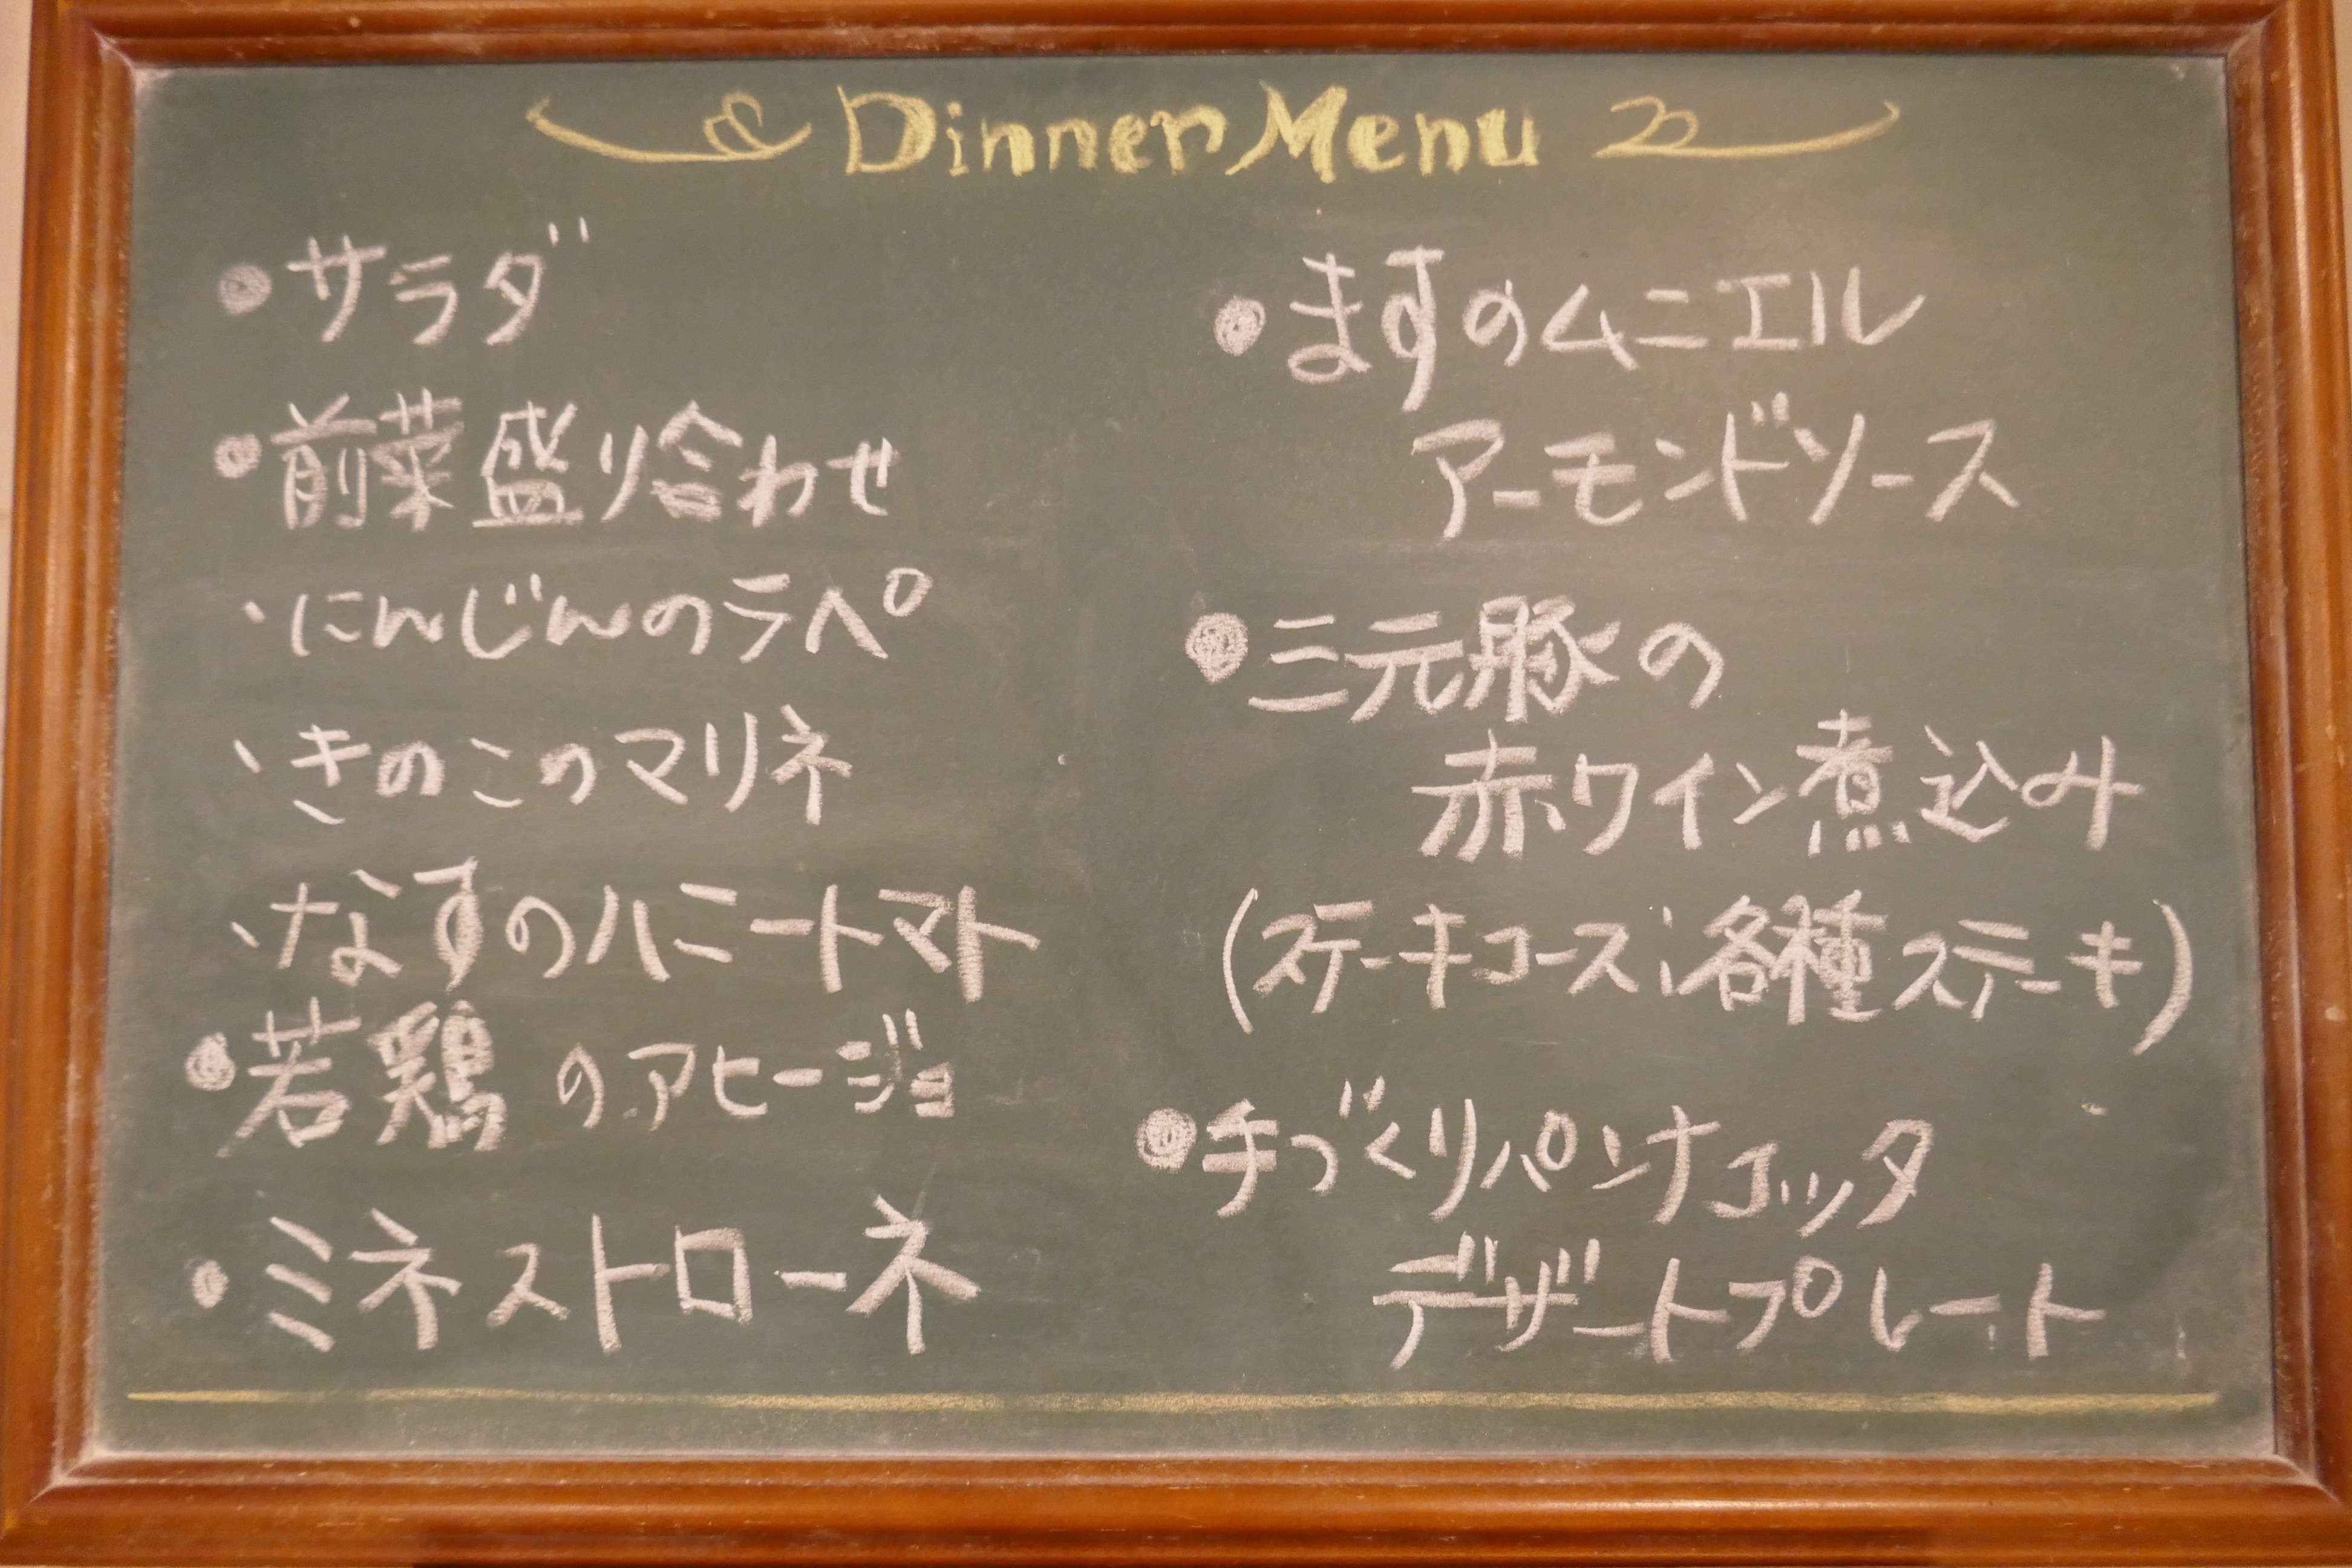 Dinner Menu
●サラダ
●前菜盛り合わせ
・にんじんのラペ
・きのこのマリネ
・なすのハニートマト
●若鶏のアヒージョ
●ミネストローネ
●ますのムニエル
アーモンドソース
●三元豚の
赤ワイン煮込み
(ステーキコース:各種ステーキ)
●手づくりパンナコッタ
デザートプレート